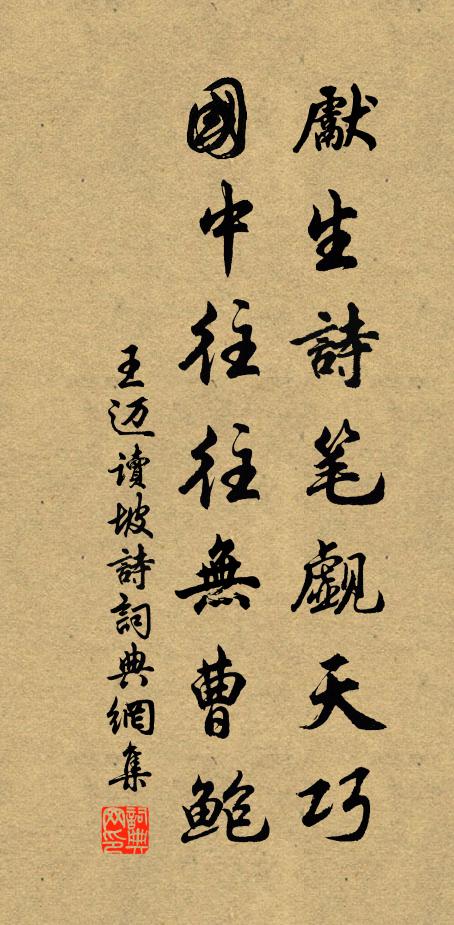 獻生詩笔覷天巧
國中往往無曹鮑
王迈讀坡詩詞典網集
詞典网印